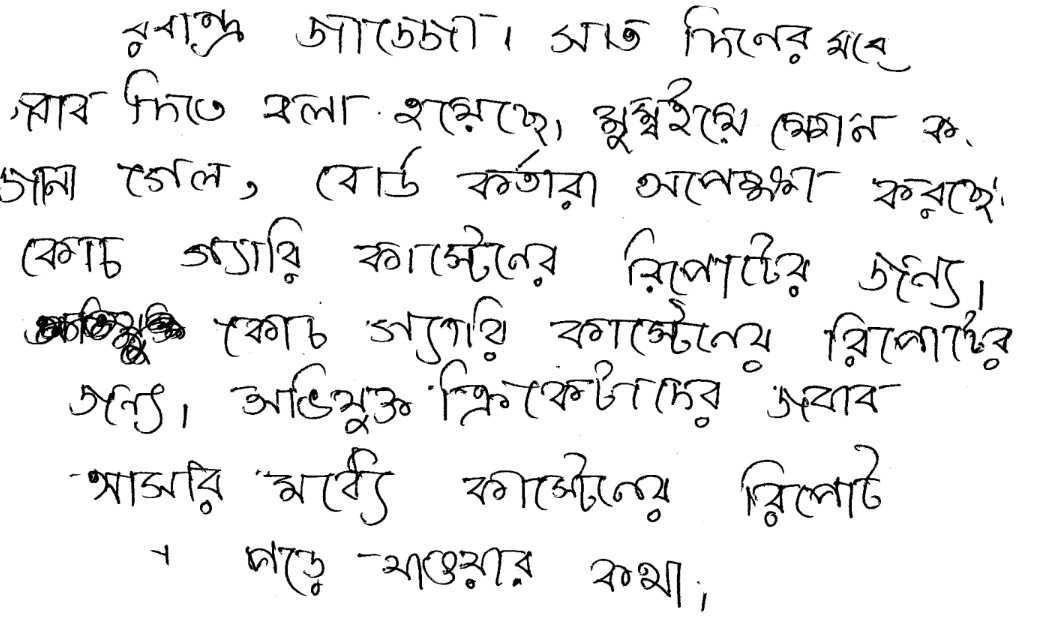 রবীন্দ্র জাডেজা। সাত দিনের মধ্যে
জবাব দিতে বলা হয়েছে। মুম্বইয়ে ফোন ক
জানা গেল, বোর্ড কর্তারা অপেক্ষা করছে
কোচ গ্যারি কার্স্টেনের রিপোর্টের জন্য।
কোচ গ্যারি কার্স্টেনের রিপোর্টের
জন্য। অভিযুক্ত ক্রিকেটাদের জবাব
আসার মধ্যে কার্স্টেনের রিপোর্ট
পড়ে যাওয়ার কথা।